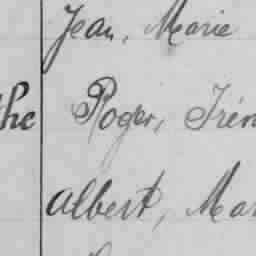 Jean, Marie
the Roger, Irén
Albert, Mar